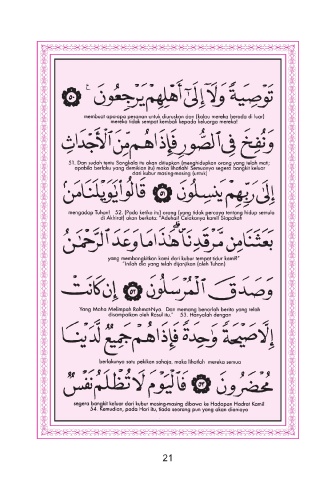 تَوْصِيَةً وَلَآ إِلَىٰٓ أَهْلِهِمْ يَرْجِعُونَ ۝٥٠
membuat apa-apa pesanan untuk diuruskan dan (kalau mereka berada di luar)
mereka tidak sempat kembali kepada keluarga mereka!
وَنُفِخَ فِى ٱلصُّورِ فَإِذَا هُم مِّنَ ٱلْأَجْدَاثِ
51. Dan sudah tentu Sangkala itu akan ditiupkan (menghidupkan orang yang telah mati;
apabila berlaku yang demikian itu) maka lihatlah! Semuanya segera bangkit keluar
dari kubur masing-masing (untuk)
إِلَىٰ رَبِّهِمْ يَنسِلُونَ ۝٥١ قَالُوا۟ يَٰوَيْلَنَا مَنۢ
mengadap Tuhan! 52. (Pada ketika itu) orang (yang tidak percaya tentang hidup semula
di Akhirat) akan berkata: "Aduhai! Celakanya kami! Siapakah
بَعَثَنَا مِن مَّرْقَدِنَا ۗ هَٰذَا مَا وَعَدَ ٱلرَّحْمَٰنُ
yang membangkitkan kami dari kubur tempat tidur kami?"
"Inilah dia yang telah dijanjikan (oleh Tuhan)
وَصَدَقَ ٱلْمُرْسَلُونَ ۝٥٢ إِن كَانَتْ
Yang Maha Melimpah RahmatNya. Dan memang benarlah berita yang telah
disampaikan oleh Rasul itu." 53. Hanyalah dengan
إِلَّا صَيْحَةً وَٰحِدَةً فَإِذَا هُمْ جَمِيعٌ لَّدَيْنَا
berlakunya satu pekikan sahaja, maka lihatlah mereka semua
مُحْضَرُونَ ۝٥٣ فَٱلْيَوْمَ لَا تُظْلَمُ نَفْسٌ
segera bangkit keluar dari kubur masing-masing dibawa ke Hadapan Hadrat Kami!
54. Kemudian, pada Hari itu, tiada seorang pun yang akan dianiaya
21